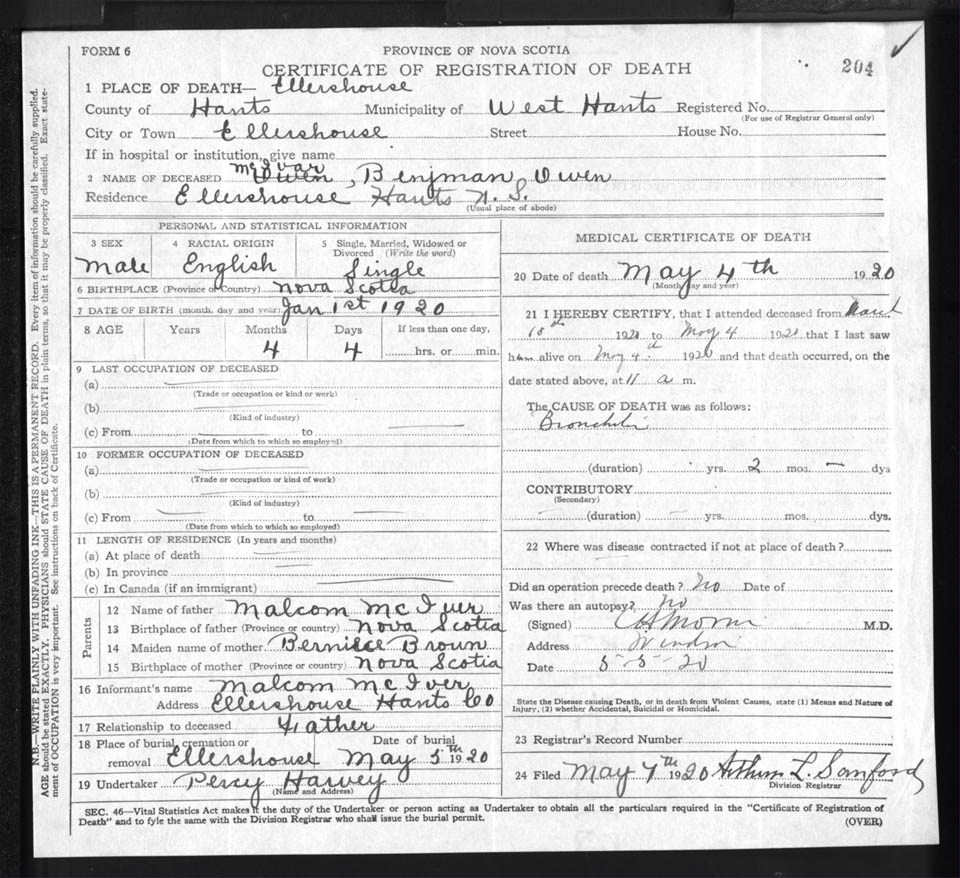 FORM 6
PROVINCE OF NOVA SCOTIA
CERTIFICATE OF REGISTRATION OF DEATH
204
1 PLACE OF DEATH— Ellershouse
County of Hants Municipality of West Hants Registered No.
(For use of Registrar General only)
City or Town Ellershouse Street House No.
If in hospital or institution, give name
McIvar
2 NAME OF DECEASED Owen, Benjman Owen
Residence Ellershouse Hants N.S.
(Usual place of abode)
PERSONAL AND STATISTICAL INFORMATION
3 SEX 4 RACIAL ORIGIN 5 Single, Married, Widowed or
Divorced (Write the word)
Male English Single
6 BIRTHPLACE (Province or Country) Nova Scotia
7 DATE OF BIRTH (month, day and year) Jan 1st 1920
8 AGE Years Months Days If less than one day,
4 4 hrs. or min.
9 LAST OCCUPATION OF DECEASED
(a)
(Trade or occupation or kind or work)
(b)
(Kind of industry)
(c) From to
(Date from which to which so employed)
10 FORMER OCCUPATION OF DECEASED
(a)
(Trade or occupation or kind of work)
(b)
(Kind of industry)
(c) From to
(Date from which to which so employed)
11 LENGTH OF RESIDENCE (In years and months)
(a) At place of death
(b) In province
(c) In Canada (if an immigrant)
Parents
12 Name of father Malcom McIver
13 Birthplace of father (Province or country) Nova Scotia
14 Maiden name of mother Berniece Broun
15 Birthplace of mother (Province or country) Nova Scotia
16 Informant's name Malcom McIver
Address Ellershouse Hants Co
17 Relationship to deceased Father
18 Place of burial, cremation or Date of burial
removal Ellershouse May 5th 1920
19 Undertaker Percy Harvey
(Name and Address)
MEDICAL CERTIFICATE OF DEATH
20 Date of death May 4th 1920
(Month day and year)
21 I HEREBY CERTIFY, that I attended deceased from March
18th 1920 to May 4 1920 that I last saw
him alive on May 4 1920 and that death occurred, on the
date stated above, at 11 a m.
The CAUSE OF DEATH was as follows:
Bronchitis
(duration) yrs. 2 mos. – dys
CONTRIBUTORY
(Secondary)
(duration) yrs. mos. dys.
22 Where was disease contracted if not at place of death?
Did an operation precede death? No Date of
Was there an autopsy? No
(Signed) M.D.
Address Windsor
Date 5-5-20
State the Disease causing Death, or in death from Violent Causes, state (1) Means and Nature of
Injury, (2) whether Accidental, Suicidal or Homicidal.
23 Registrar's Record Number
24 Filed May 7th 1920 Arthur L. Sanford
Division Registrar
SEC. 46—Vital Statistics Act makes it the duty of the Undertaker or person acting as Undertaker to obtain all the particulars required in the "Certificate of Registration of
Death" and to fyle the same with the Division Registrar who shall issue the burial permit.
(OVER)
N.B.—WRITE PLAINLY WITH UNFADING INK—THIS IS A PERMANENT RECORD. Every item of information should be carefully supplied.
AGE should be stated EXACTLY. PHYSICIANS should STATE CAUSE OF DEATH in plain terms, so that it may be properly classified. Exact state-
ment of OCCUPATION is very important. See instructions on back of Certificate.